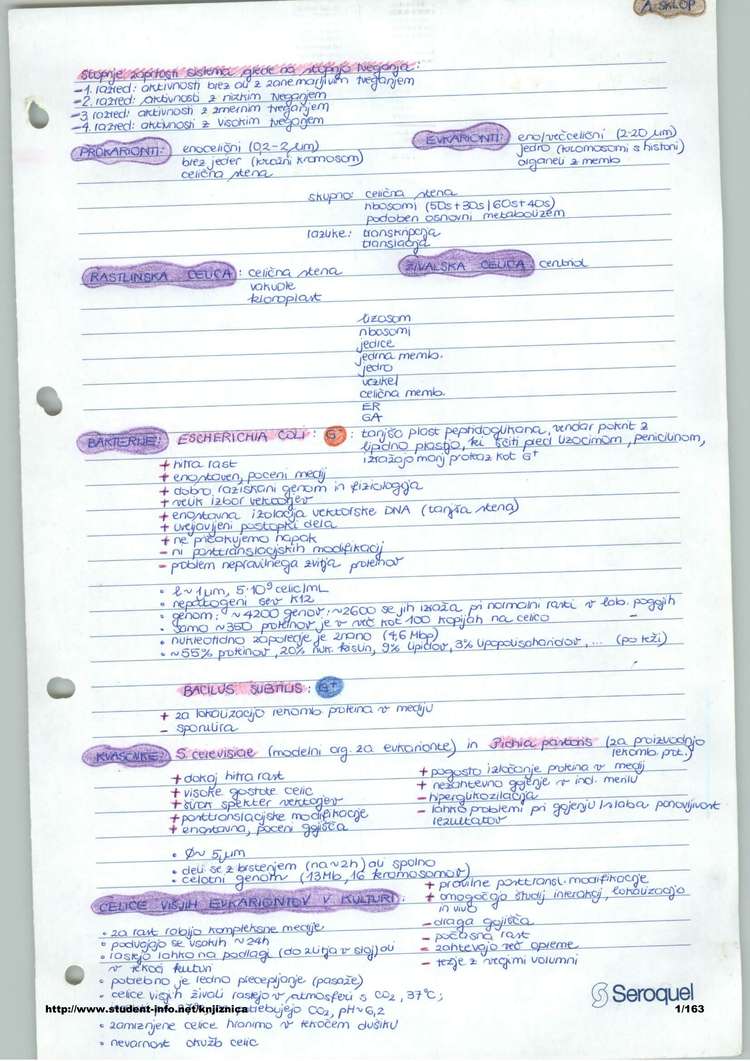 A SKLOP
Stopnje zaprtosti sistema glede na stopnjo tveganja:
-1. razred: aktivnosti brez ali z zanemarljivim tveganjem
-2. razred: aktivnosti z nizkim tveganjem
-3. razred: aktivnosti z zmernim tveganjem
-4. razred: aktivnosti z visokim tveganjem
PROKARIONTI: enocelični (0,2-2 µm)
brez jeder (krožni kromosom)
celična stena
EVKARIONTI: eno/večcelični (2-20 µm)
jedro (kromosomi s histoni)
organeli z memb.
skupno: celična stena
ribosomi (50s+30s | 60s+40s)
podoben osnovni metabolizem
razlike: transkripcija
translacija
RASTLINSKA CELICA: celična stena
vakuole
kloroplast
ŽIVALSKA CELICA: centriol
lizosom
ribosomi
jedrce
jedrna memb.
jedro
vezikel
celična memb.
ER
GA
BAKTERIJE: ESCHERICHIA COLI: G-: tanjšo plast peptidoglikana, vendar pokrit z
lipidno plastjo, ki ščiti pred lizocimom, penicilinom,
izražajo manj protaz kot G+
+ hitra rast
+ enostaven, poceni medij
+ dobro raziskani genom in fiziologija
+ velik izbor vektorjev
+ enostavna izolacija vektorske DNA (tanjša stena)
+ uveljavljeni postopki dela
+ ne pričakujemo napak
- ni posttranslacijskih modifikacij
- problem nepravilnega zvitja proteinov
• l~1µm, 5·10⁹ celic/mL
• nepatogeni sev K12
• genom: ~4200 genov; ~2600 se jih izraža pri normalni rasti v lab. pogojih
• samo ~350 proteinov je v več kot 100 kopijah na celico
• nukleotidno zaporedje je znano (4,6 Mbp)
• ~55% proteinov, 20% nuk. kislin, 9% lipidov, 3% lipopolisaharidov, ... (po teži)
BACILUS SUBTILIS: G+
+ za lokalizacijo rekomb. proteina v mediju
- sporulira
KVASOVKE: S. cerevisiae (modelni org. za evkarionte) in Pichia pastoris (za proizvodnjo
rekomb. prot.)
+ dokaj hitra rast
+ visoke gostote celic
+ širok spekter vektorjev
+ posttranslacijske modifikacije
+ enostavna, poceni gojišča
+ pogosto izločanje proteina v medij
+ nezahtevno gojenje v ind. merilu
- hiperglikozilacija
- lahko problemi pri gojenju in slaba ponovljivost
rezultatov
• Ø~ 5µm
• deli se z brstenjem (na ~2h) ali spolno
• celotni genom (13Mb, 16 kromosomov)
CELICE VIŠJIH EVKARIONTOV V KULTURI:
+ pravilne posttransl. modifikacije
+ omogočajo študij interakcij, lokalizacijo
in vivo
- draga gojišča
- počasna rast
- zahtevajo več opreme
- težje z večjimi volumni
• za rast rabijo kompleksne medije
• podvojijo se vsakih ~24h
• rastejo lahko na podlagi (do zlitja v sloj) ali
v tekoči kulturi
• potrebno je redno precepljanje (pasaže)
• celice višjih živali rastejo v atmosferi s CO₂, 37°C;
CO₂, pH~6,2
• zamrznjene celice hranimo v tekočem dušiku
• nevarnost okužb celic
http://www.student-info.net/knjiznica
Seroquel
1/163